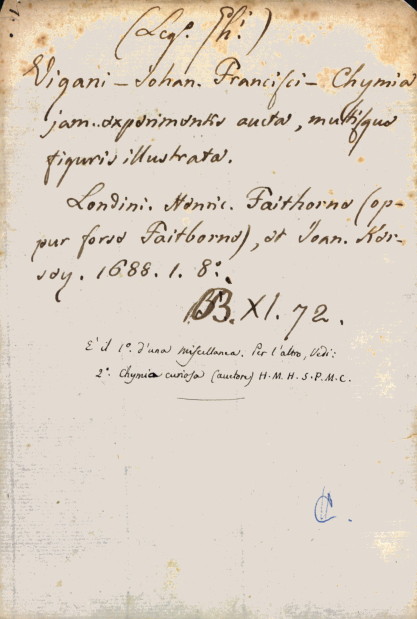 (Leg. Chi.)
Vigani – Johan. Francisci – Chymia
jam. experimentis aucta, multisque
figuris illustrata.
Londini. Henric. Faithorne (op-
pur forse Faitborne), et Joan. Ker-
sey. 1688. 1. 8°.
BB. XI. 72.
E' il 1°. d'una Miscellanea. Per l'altro, Vedi:
2°. Chymia curiosa (auctore) H. M. H. S. P. M. C.